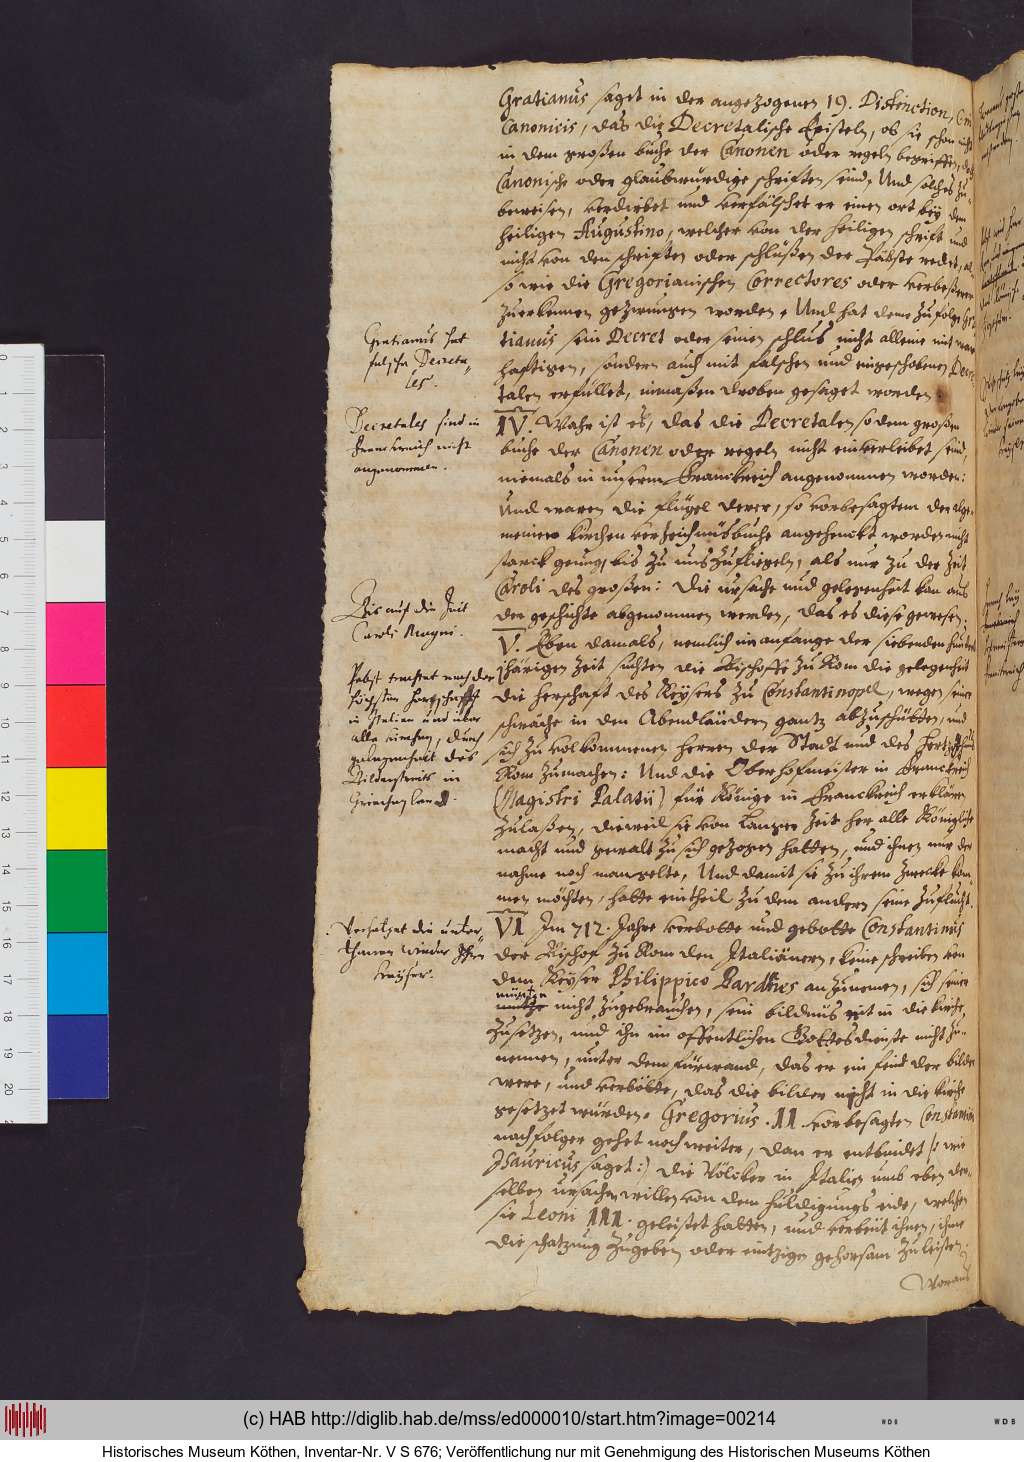 Gratianus saget in der angezogenen 19. Distinction, C. in
Canonicis, das die Decretalische Episteln, ob sie schon nicht
in dem großen buche der Canonen oder regeln begriffen, doch
Canonische oder glaubwürdige schriften seind, Und solches zu
beweisen, verdrehet und verfälschet er einen ort bey dem
heiligen Augustino, welcher von der heiligen schrift und
nicht von den schriften oder schlüßen der Päbste redet, al
so wie die Gregorianischen Correctores oder verbeßerer
zuerkennen gezwungen worden. Und hat deme zufolge Gra
tianus sein Decret oder seinen schlus nicht alleine mit war
haftigen, sondern auch mit falschen und eingeschobenen Decre
talen erfüllet, inmaßen droben gesaget worden.
Gratianus hat
falsche Decreta
les.
IV. Wahr ist es, das die Decretalen so dem großen
buche der Canonen oder regeln nicht einverleibet seind,
niemals in unserm Franckreich angenommen worden:
Und waren die flügel derer, so vorbesagtem der alge
meinen kirchen verzeichnüsbuche angehenckt worden nicht
starck genug, bis zu uns zufliegeln, als nur zu der zeit
Caroli des großen: Die ursache und gelegenheit kan aus
der geschichte abgenommen werden, das es diese gewesen.
Decretales sind in
Franckreich nicht
angenommen.
Bis auf die Zeit
Caroli Magni.
V. Eben damals, nemlich im anfange der siebenden hundert
jhärigen zeit suchten die Bischoffe zu Rom die gelegenheit
die herschaft des Keysers zu Constantinopel, wegen seiner
schwäche in den Abendländern gantz abzuschütten, und
sich zu volkommenen herren der Stadt und des Hertzogthums
Rom zumachen: Und die Oberhofmeister in Franckreich
(Magistri Palatii) für Könige in Franckreich erklären
zulaßen, dieweil sie von langer zeit her alle Königliche
macht und gewalt zu sich gezogen hatten, und ihnen nur der
nahme noch mangelte, Und damit sie zu ihrem zwecke kom
men möchten, hatte ein theil zu dem andern seine zuflucht.
Pabst trachtet nach der
höchsten herschafft
in Italien und über
alle kirchen, durch
gelegenheit des
Bilderstreits in
Griechenland.
VI. Im 712. Jahre verbotte und gebotte Constantinus
der Bischof zu Rom den Italiänern, keine schreiben von
dem Keyser Philippico Bardanes anzunemen, sich seiner
müntze
nicht zugebrauchen, sein bildnüs nit in die kirche
zusetzen, und ihn im offentlichen Gottesdienste nicht zu
nennen, unter dem fürwand, das er ein feind der bilder
were, und verbötte, das die bilder nicht in die kirche
gesetzet würden. Gregorius II. vorbesagten Constantini
nachfolger gehet noch weiter, dan er entbindet (: wie
Isauricus saget:) die Völcker in Italien umb eben der
selben ursachen willen von dem huldigungs eide, welchen
sie Leoni III. geleistet hatten, und verbeut ihnen, ihme
die schatzung zugeben oder eintzigen gehorsam zuleisten.
Verhetzet die unter
thanen wieder Ihren
Keyser.
Woraus
(c) HAB http://diglib.hab.de/mss/ed000010/start.htm?image=00214
Historisches Museum Köthen, Inventar-Nr. V S 676; Veröffentlichung nur mit Genehmigung des Historischen Museums Köthen